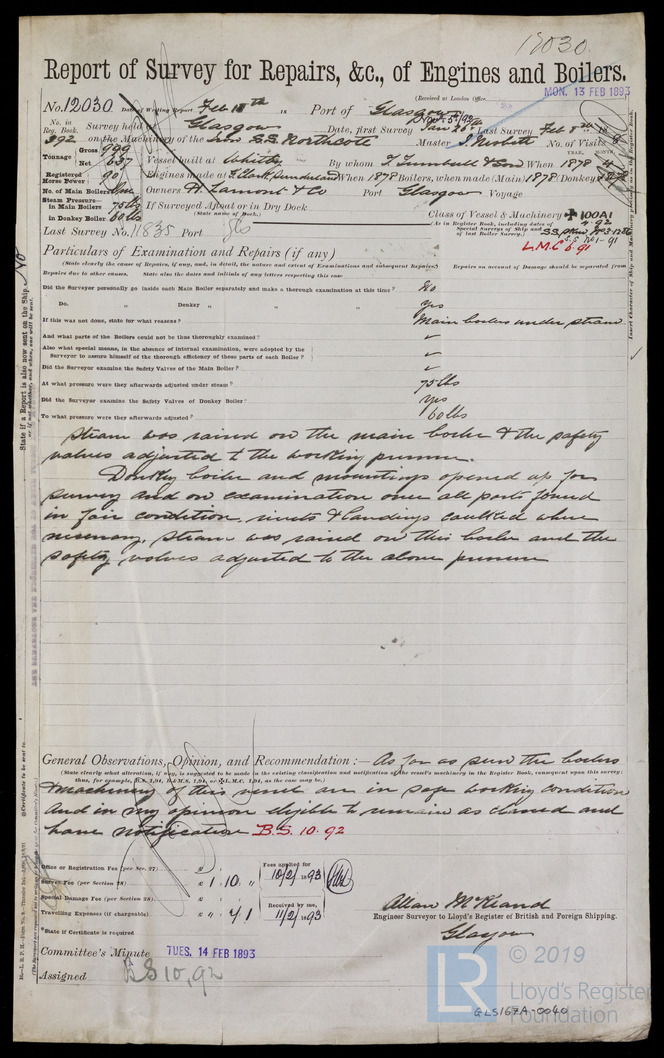 12030.
Report of Survey for Repairs, &c., of Engines and Boilers.
(Received at London Office
MON. 13 FEB 1893
No. 12030 Date of Writing Report Feb 18 Port of Glasgow
No. in Reg. Book. 392 Survey held at Glasgow Date, first Survey Jan 26 Last Survey Feb 8th
on the Machinery of the Iron S.S. Northcote Master J. Nisbett No. of Visits
Tonnage Gross 999
Net 637 Vessel built at Whitby By whom T. Turnbull & Son When 1878
Registered Horse Power 90 Engines made at When 1878 Boilers, when made (Main) 1878 (Donkey)
No. of Main Boilers One Owners H. Lamont & Co Port Glasgow Voyage
Steam Pressure in Main Boilers 75lbs If Surveyed Afloat or in Dry Dock
(State name of Dock.)
in Donkey Boiler 60lbs Class of Vessel & Machinery 100A1
(As in Register Book, including dates of Special Surveys of Ship and of last Boiler Survey.)
Last Survey No. 11835 Port Gls
L.M.C 6.91
Particulars of Examination and Repairs (if any)
(State clearly the cause of Repairs, if any, and, in detail, the nature and extent of Examinations and subsequent Repairs.) Repairs on account of Damage should be separated from
Repairs due to other causes. State also the dates and initials of any letters respecting this case
Did the Surveyor personally go inside each Main Boiler separately and make a thorough examination at this time? No
Do. " Donkey " " " Yes
If this was not done, state for what reasons? Main boilers under steam
And what parts of the Boilers could not be thoroughly examined?
Also what special means, in the absence of internal examination, were adopted by the
Surveyor to assure himself of the thorough efficiency of those parts of each Boiler?
Did the Surveyor examine the Safety Valves of the Main Boiler?
At what pressure were they afterwards adjusted under steam? 75lbs
Did the Surveyor examine the Safety Valves of Donkey Boiler? Yes
To what pressure were they afterwards adjusted? 60lbs
Steam was raised on the main boiler & the safety
valves adjusted to the working pressure.
Donkey boiler and mountings opened up for
survey and on examination once all parts found
in fair condition, rivets & landings caulked where
necessary, steam was raised on this boiler and the
safety valves adjusted to the above pressure
General Observations, Opinion, and Recommendation :— As far as seen the boilers
(State clearly what alteration, if any, is suggested to be made in the existing classification and notification of the vessel's machinery in the Register Book, consequent upon this survey;
thus, for example, B.S. 1,94, B.&M.S. 1,94, or L.M.C. 1,94, as the case may be.)
& machinery of this vessel are in safe working condition
and in my opinion eligible to remain as classed and
have notification B.S. 10.92
Office or Registration Fee (per Sec. 27) £ : : Fees applied for
Survey Fee (per Section 28) £ 1 : 10 : " 10/2/1893
Special Damage Fee (per Section 28) £ : : Received by me,
Travelling Expenses (if chargeable) £ 11/2/1893
*State if Certificate is required
Allan McKeand
Engineer Surveyor to Lloyd's Register of British and Foreign Shipping.
Glasgow
Committee's Minute TUES. 14 FEB 1893
Assigned BS 10,92
© 2019
LR
Lloyd's Register
Foundation
GLS167A-0040
State if a Report is also now sent on the Ship. No
or if not whether, and when, one will be sent.